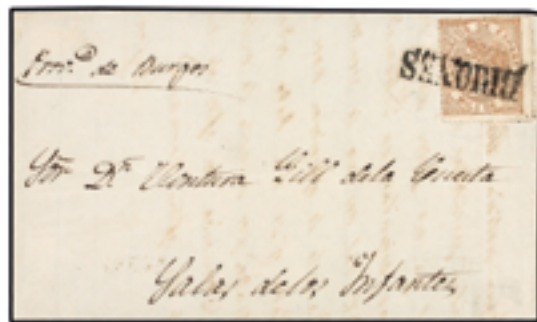 Prov.ª de Burgos
Sor Dn Ventura Gill dela Cuesta
Salas delos Infantes